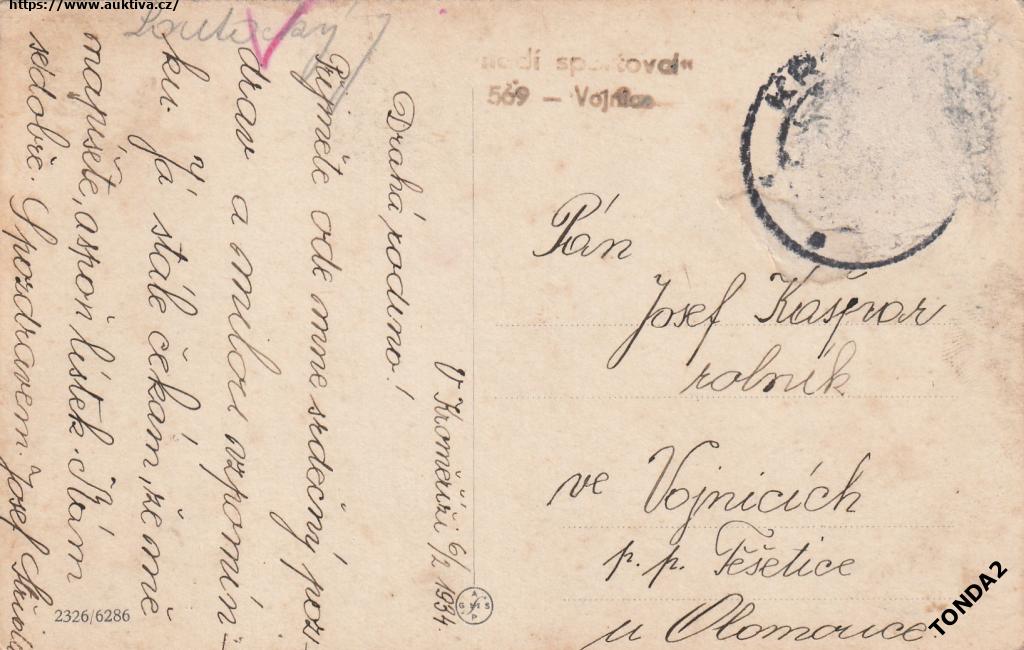 https://www.auktiva.cz/
V Kroměříži 6/2 1934.
Drahá rodino!
Přijměte ode mne srdečný poz-
drav a milou vzpomín-
ku. Já stále čekám, že mě
napíšete, aspoň lístek. Mám
se dobře. S pozdravem Josef
2326/6286
sportoval"
569 – Vojnice
KR
Pán
Josef Kašpar
rolník
ve Vojnicích
p. p. Těšetice
u Olomouce
TONDA2